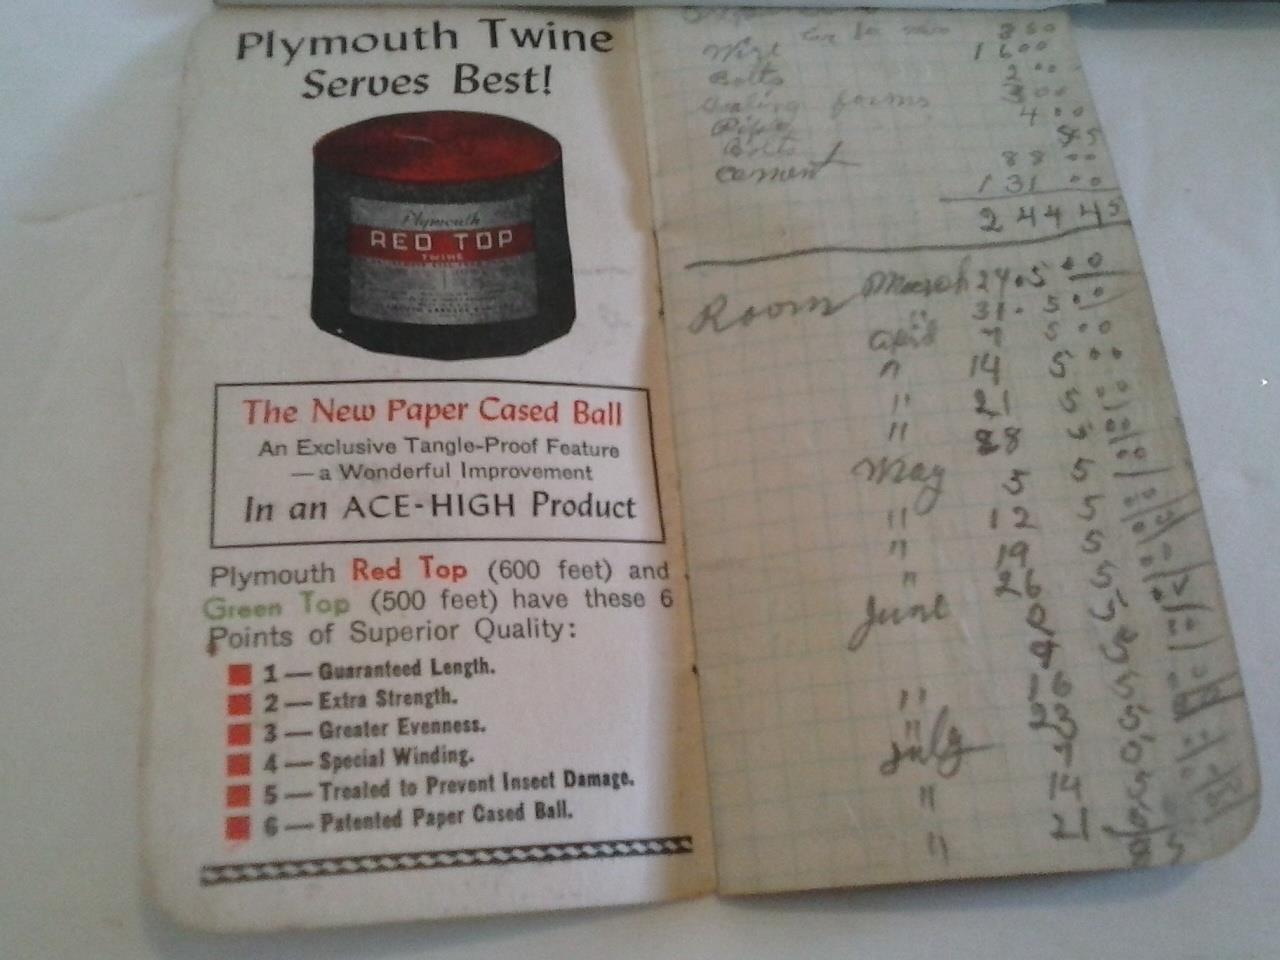 Plymouth Twine
Serves Best!
Plymouth
RED TOP
TWINE
The New Paper Cased Ball
An Exclusive Tangle-Proof Feature
— a Wonderful Improvement
In an ACE-HIGH Product
Plymouth Red Top (600 feet) and
Green Top (500 feet) have these 6
Points of Superior Quality:
1 — Guaranteed Length.
2 — Extra Strength.
3 — Greater Evenness.
4 — Special Winding.
5 — Treated to Prevent Insect Damage.
6 — Patented Paper Cased Ball.
860
Wire 16 00
Bolts 2 00
forms 3 00
Pipe 4 00
Bolts
cement 88 00
131 00
244 45
Room March 24. 5 00
" 31. 5 00
April 7 5 00
" 14 5 00
" 21 5 00
" 28 5 00
May 5 5
" 12 5
" 19 5
" 26 5
June
9
" 16 5
" 23 5
July 7
" 14
" 21